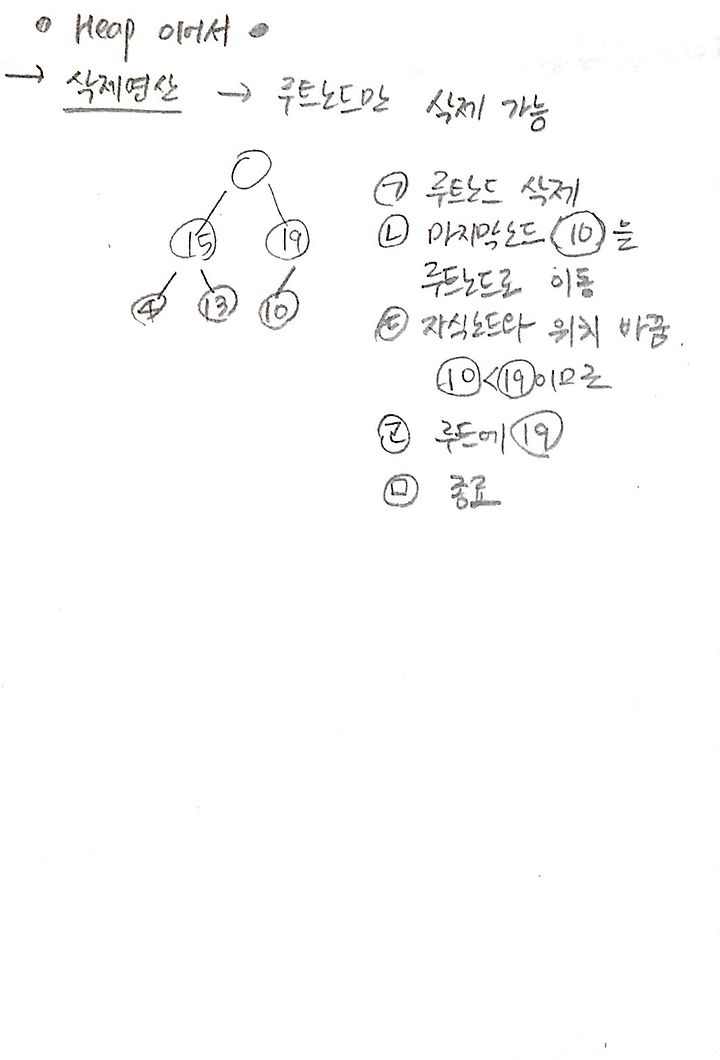 • Heap 이어서 •
→ 삭제연산 → 루트노드만 삭제 가능
15 19
4 13 10
㉠ 루트노드 삭제
㉡ 마지막노드 ⑩을
루트노드로 이동
㉢ 자식노드와 위치 바꿈.
⑩<⑲이므로
㉣ 루트에 ⑲
㉤ 종료